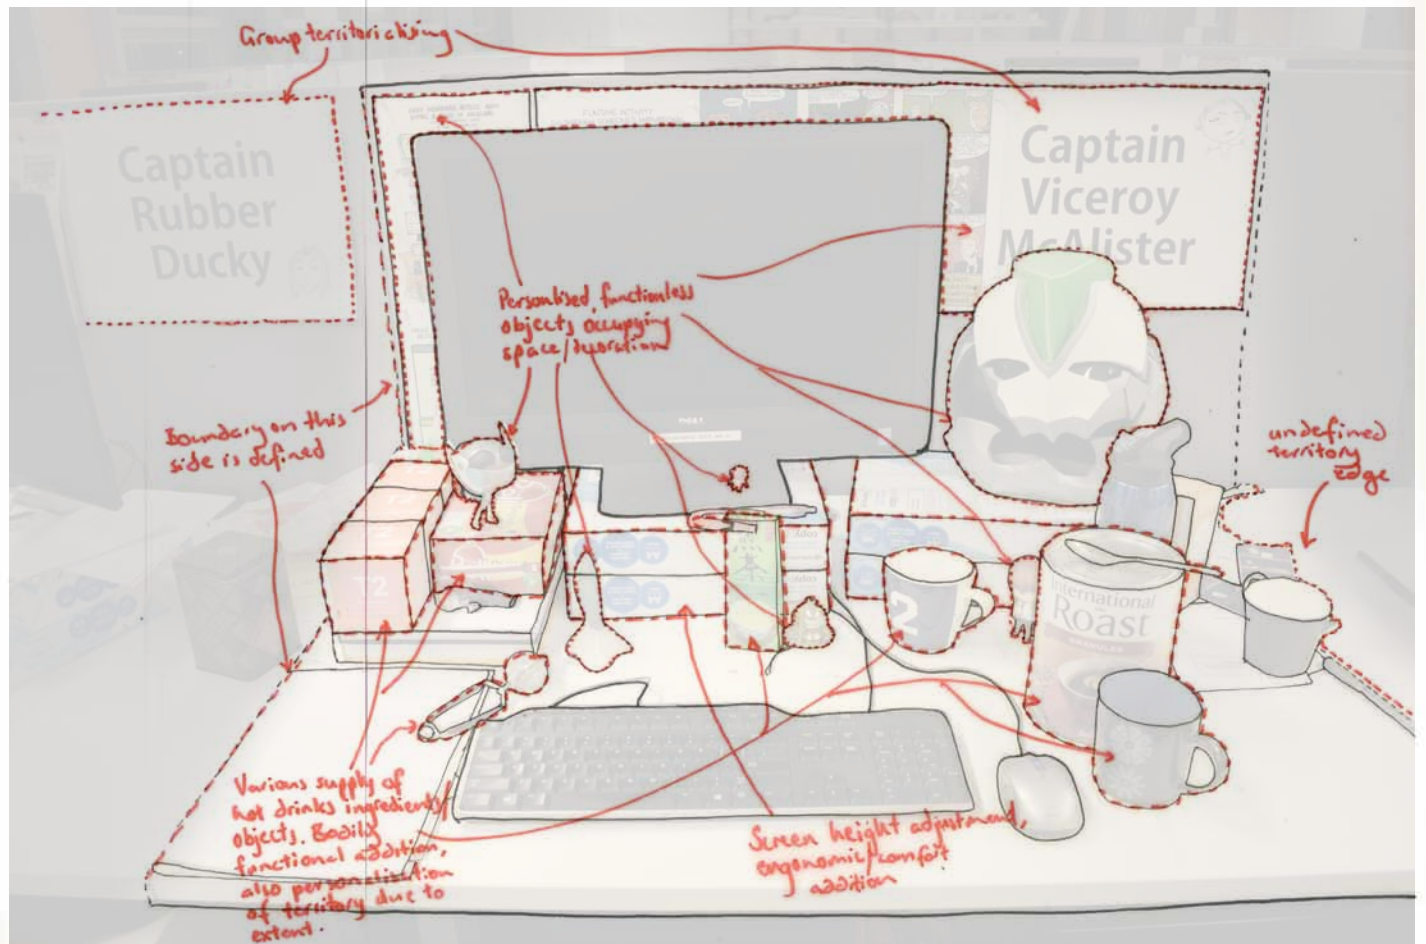 Group territorialising
Captain
Rubber
Ducky
Captain
Viceroy
McAlister
Personalised, functionless
objects occupying
space/decoration
Boundary on this
side is defined
undefined
territory
edge
T2
T2
International
Roast
2
Various supply of
hot drinks ingredients/
objects. Bodily
functional addition,
also personalisation
of territory due to
extent.
Screen height adjustment,
ergonomic/comfort
addition